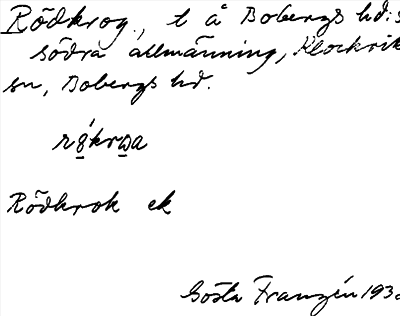 Rödkrog., t å Bobergs hd:s
södra allmänning, Klockrik
sn, Bobergs hd.
rö́krɷa
Rödkrok ek
Gösta Franzén 193